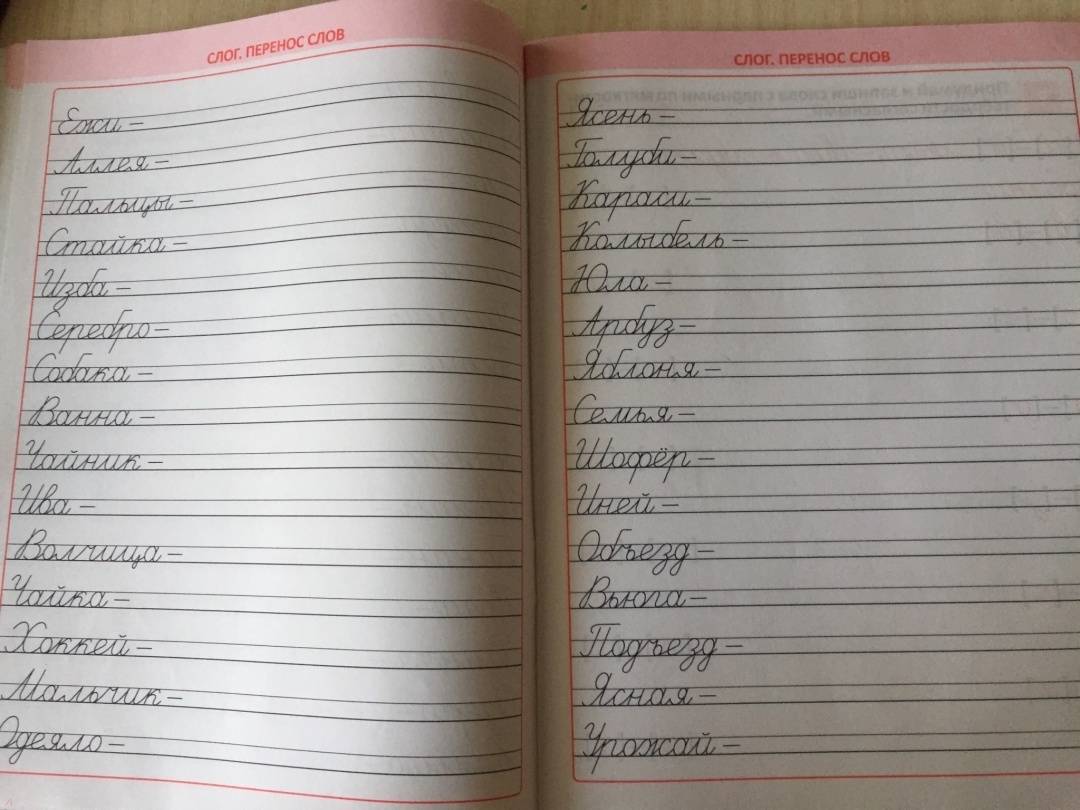 СЛОГ. ПЕРЕНОС СЛОВ
Ежи –
Аллея –
Пальцы –
Стайка –
Изба –
Серебро –
Собака –
Ванна –
Чайник –
Ива –
Волчица –
Чайка –
Хоккей –
Мальчик –
Одеяло –
СЛОГ. ПЕРЕНОС СЛОВ
Ясень –
Голуби –
Караси –
Колыбель –
Юла –
Арбуз –
Яблоня –
Семья –
Шофёр –
Иней –
Объезд –
Вьюга –
Подъезд –
Ясная –
Урожай –